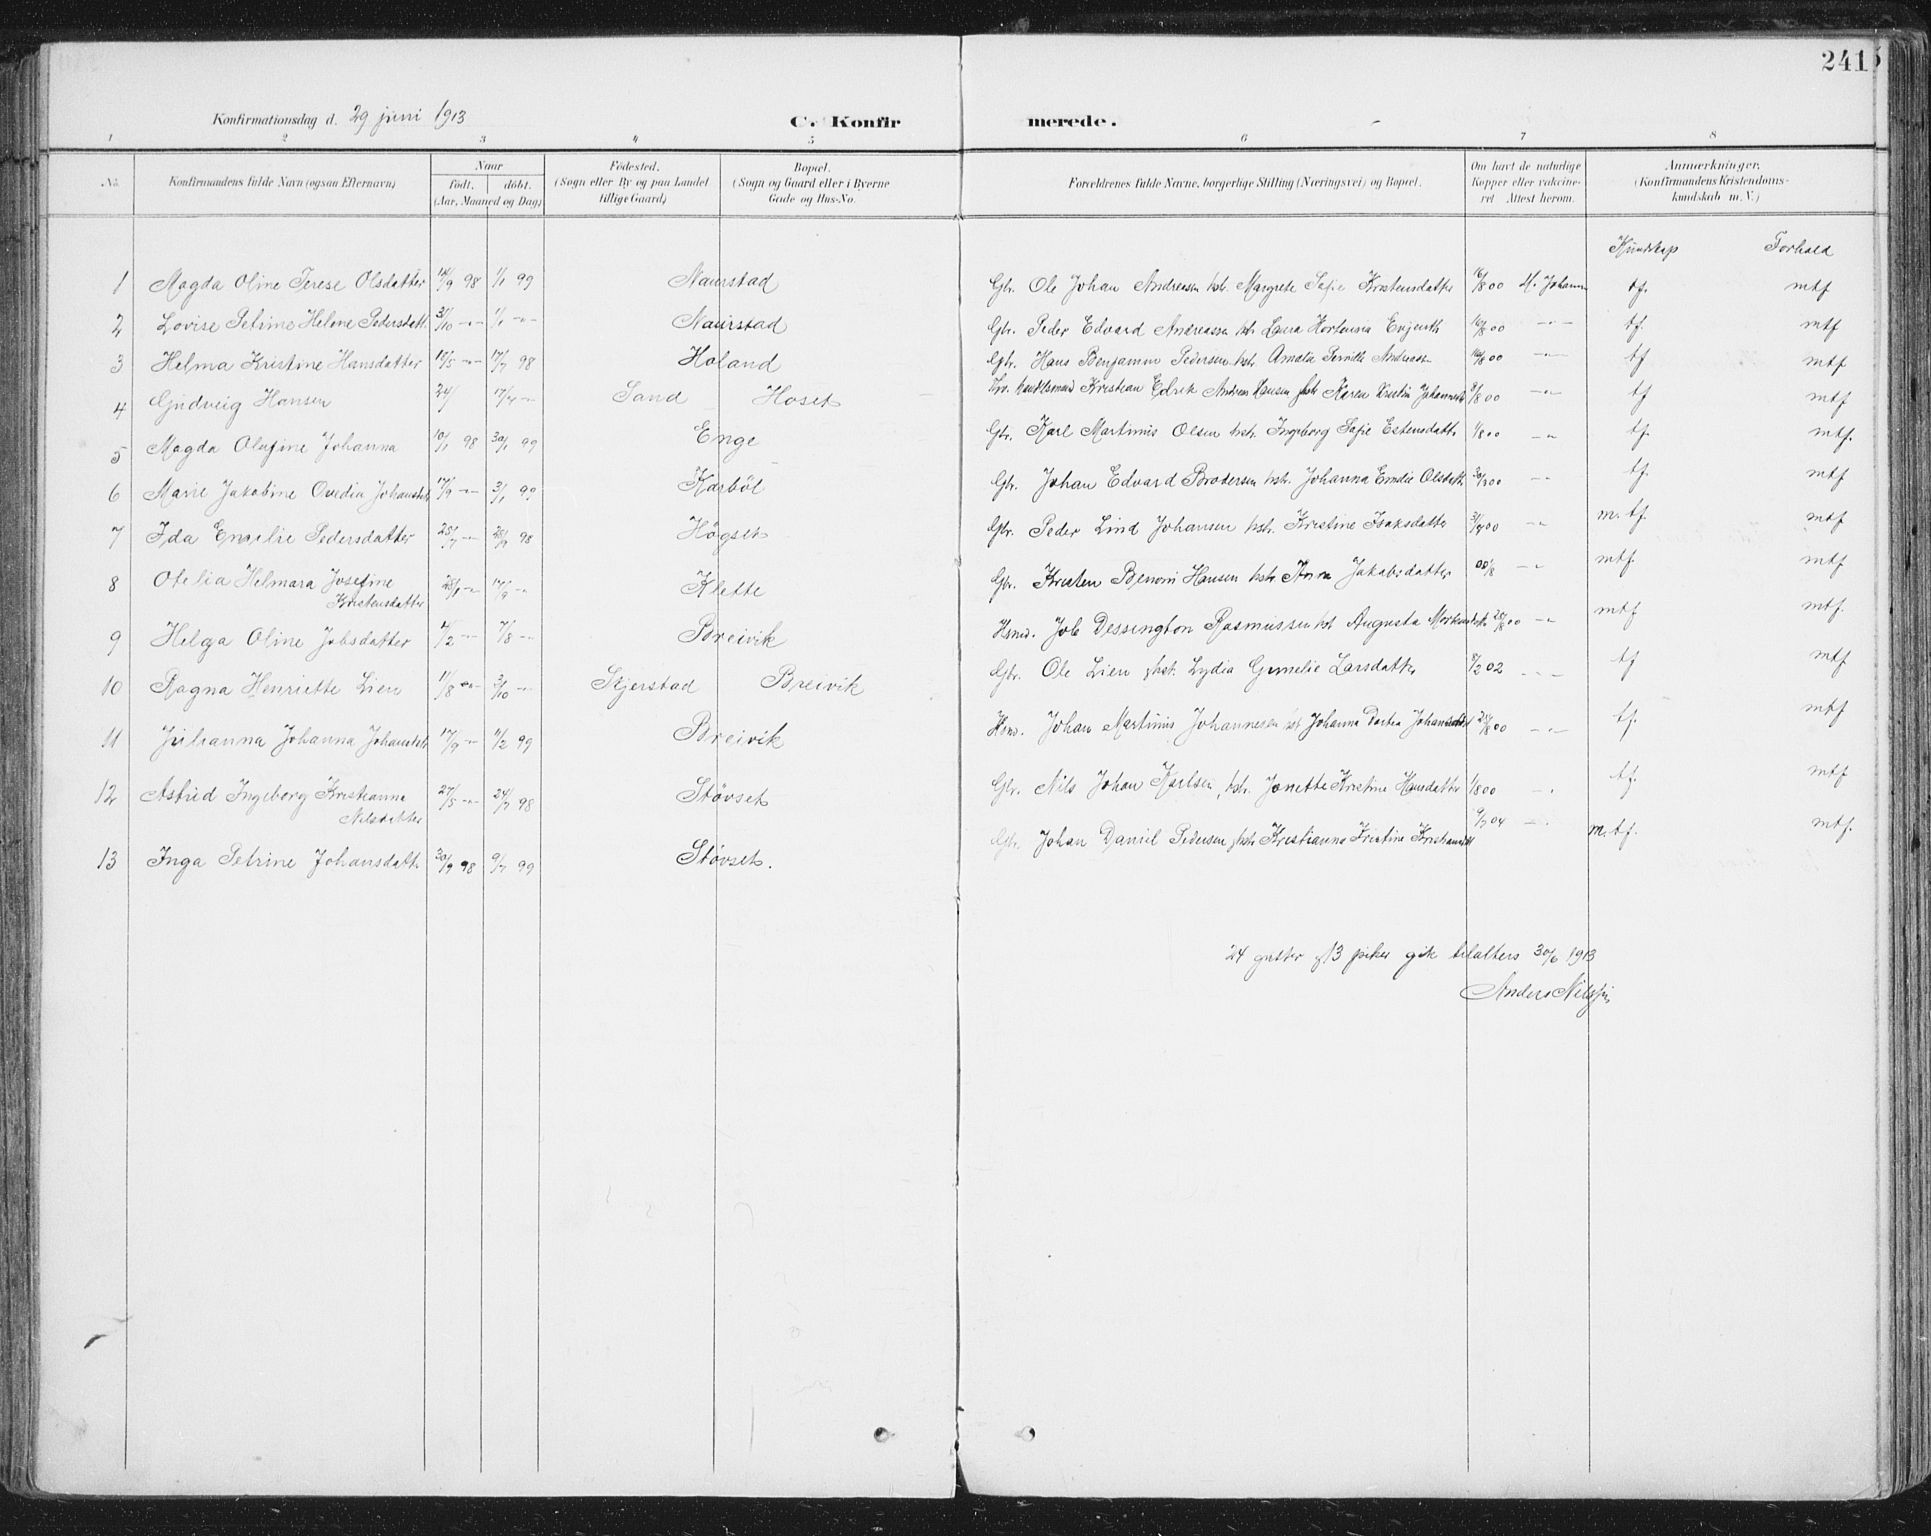 241
Konfirmationsdag d. 29 juni 1913
C. Konfir merede.
1 2 3 4 5 6 7 8
No. Konfirmandens fulde Navn (ogsaa Efternavn) Naar født. døbt. (Aar, Maaned og Dag) Fødested. (Sogn eller By og paa Landet tillige Gaard) Bopæl. (Sogn og Gaard eller i Byerne Gade og Hus-No. Forældrenes fulde Navne, borgerlige Stilling (Næringsvei) og Bopæl. Om havt de naturlige Kopper eller vaksineret Attest herom. Anmærkninger. (Konfirmandens Kristendomskundskab m. V.)
Kundskap Forhold
1 Magda Oline Terese Olsdatter 14/9 98 1/1 99 Naurstad Gbr. Ole Johan Andreassen hstr. Margrete Sofie Kristensdatter 16/8 00 M. Johansen tf. mtf
2 Lovise Petrine Helene Pedersdatt. 31/10 -"- 1/1 -"- Naurstad Gbr. Peder Edvard Andreassen hstr. Laura Hortensia Evjenth 16/8 00 -"- tf. mtf
3 Helma Kristine Hansdatter 19/5 -"- 17/7 98 Holand Gbr. Hans Benjamin Pedersen hstr. Amalia Andreasen 16/8 00 -"- tf mtf
4 Gudveig Hansen 24/ 17/7 -"- Sand Hoset Handelsmand Kristian Edvik Andreas Hansen hstr Karen Kristin Johannesd 8/8 00 -"- tf mtf
5 Magda Olufine Johanna 10/1 98 30/1 99 Enge Gbr. Karl Martinus Olsen hstr. Ingeborg Sofie Estensdatt. 1/8 00 -"- tf. mtf.
6 Marie Jakobine Ovedia Johansdt 17/9 -"- 3/1 99 Karbøl Gbr. Johan Edvard Brodersen hstr. Johanna Emilie Olsdatt. 30/3 00 -"- tf. mtf
7 Ida Emilie Pedersdatter 25/7 -"- 28/9 98 Høgset Gbr. Peder Lind Johansen hstr. Kristine Isaksdatter 31/7 00 -"- m. tf. mtf
8 Otelia Helmara Josefine Kristensdatter 28/1 -"- 17/9 -"- Klette Gbr. Kristen Benoni Hansen hstr. Anna Jakobsdatter 00/8 -"- mtf. mtf
9 Helga Oline Jobsdatter 4/2 -"- 7/8 -"- Breivik Hsmd. Job Dessington Rasmussen hst Augusta 28/8 00 -"- mtf mtf.
10 Ragna Henriette Lien 11/8 -"- 3/10 -"- Skjerstad Breivik Gbr. Ole Lien hstr. Lydia Gunelie Larsdatter 8/2 02 -"- tf mtf
11 Julianna Johanna Johansdt. 17/9 -"- 11/2 99 Breivik Hsmd. Johan Martinus Johannesen hst Johanna Dortea Johansdt 21/8 00 -"- tf. mtf
12 Astrid Ingeborg Kristianna Nilsdatter 27/5 -"- 24/7 98 Støvset Gbr. Nils Johan Karlsen, hstr. Janette Kristine Hansdatter 1/8 00 -"- tf. mtf
13 Inga Petrine Johansdatt. 30/9 98 9/7 99 Støvset. Gbr. Johan Daniel Pedersen hstr Kristianna Kristine Kristiansdt 9/7 04 -"- m. tf. mtf.
24 gutter og 13 piker gik tilalters 30/6 1913
Anders Nilssen